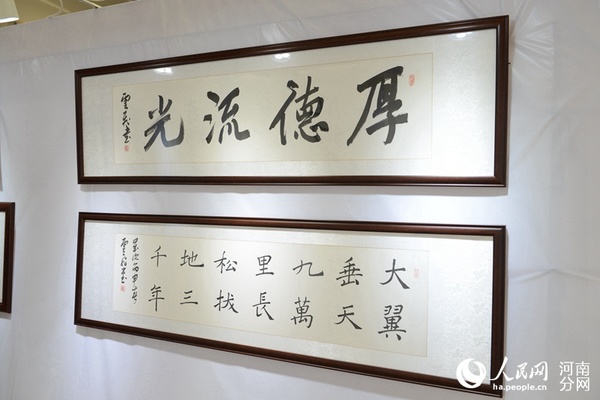 厚德流光
大翼
垂天
九萬
里長
松拔
地三
千年
人民网
ha.people.cn
河南
分网